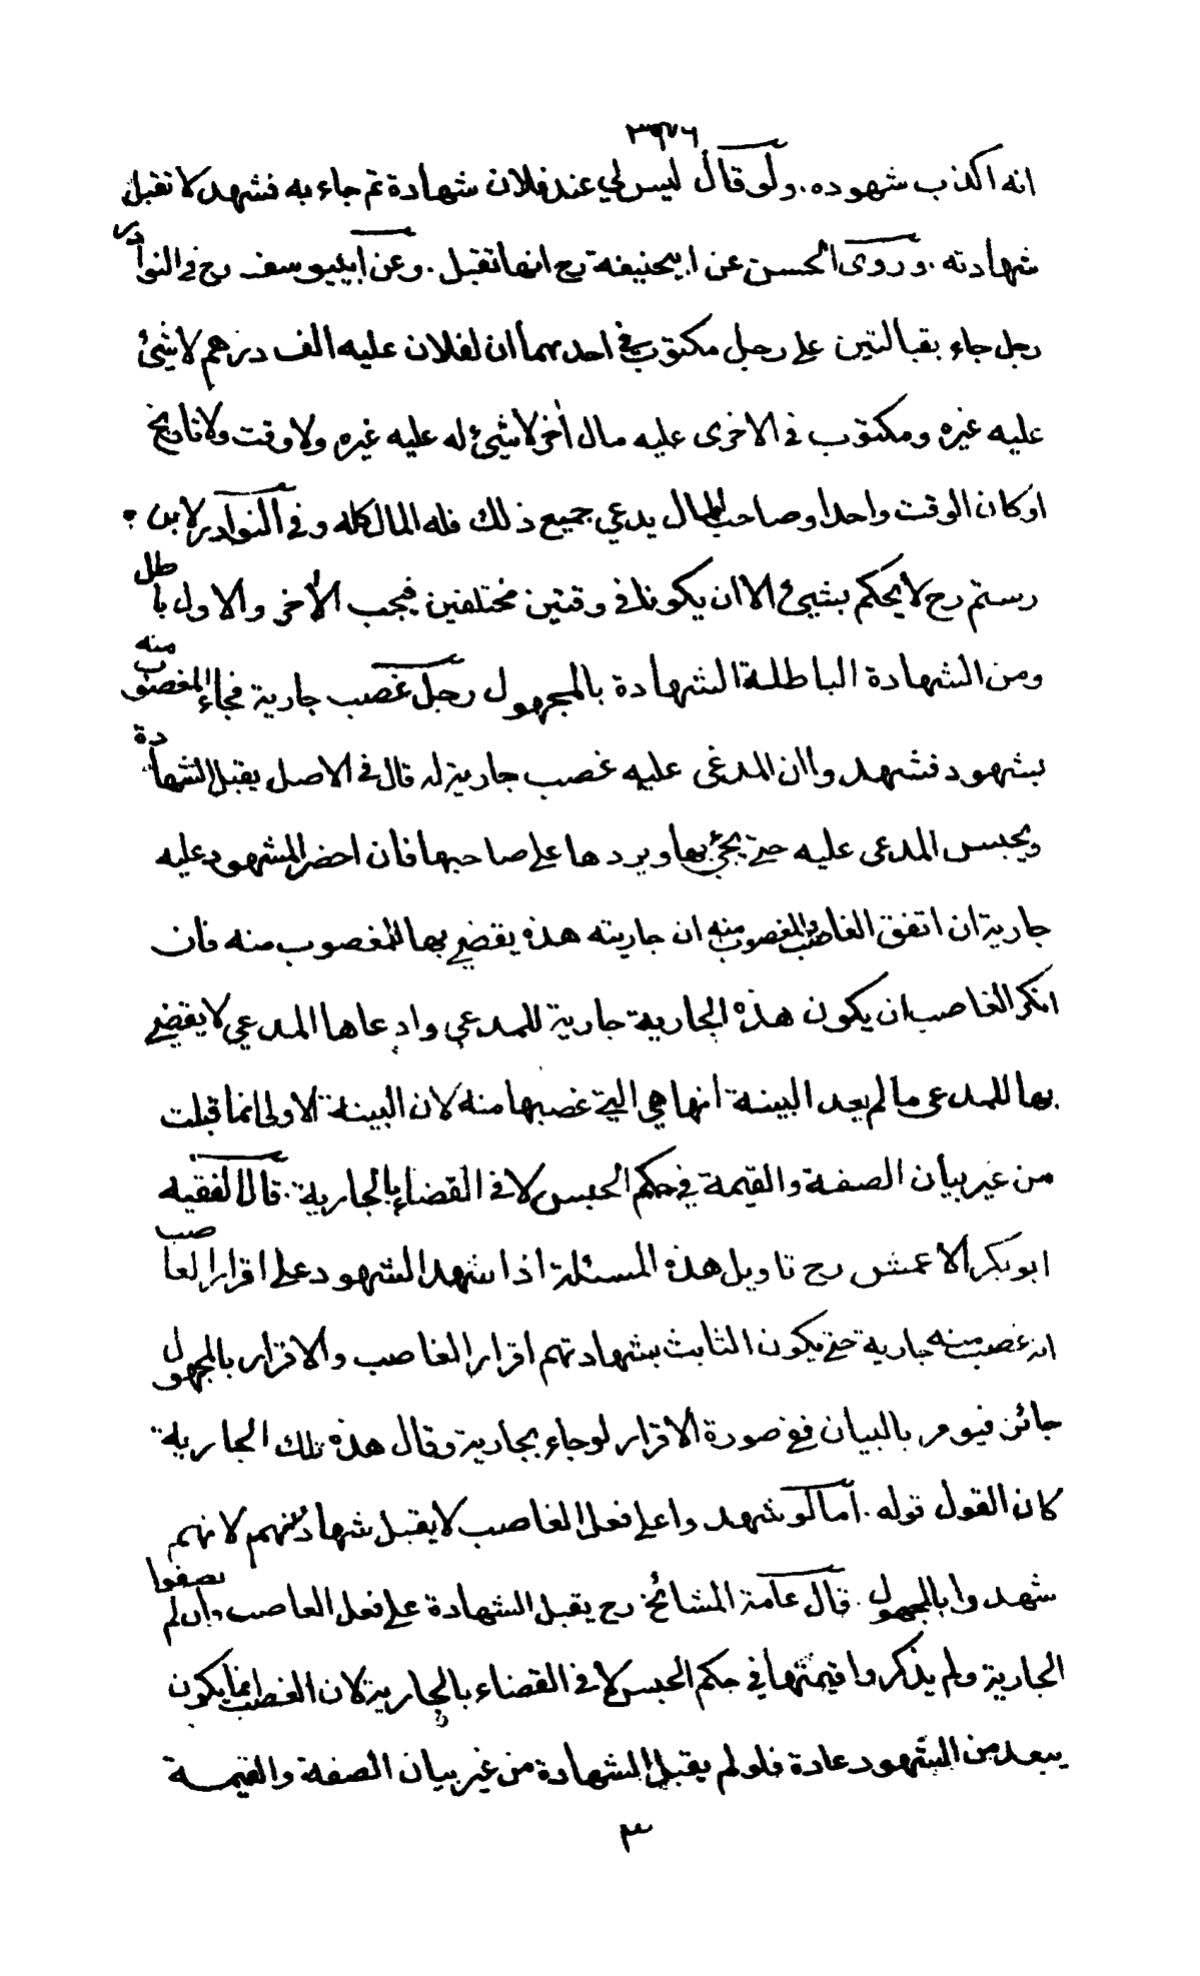 ٣٩٧٦
انه اكذب شهوده. ولو قال ليس لي عند فلان شهادة ثم جاء به فشهد لا تقبل
شهادته. وروى الحسن عن ابيحنيفة رح انها تقبل. وعن ابييوسف رح في النوادر
رجل جاء بقبالتين على رجل مكتوب في احدهما ان لفلان عليه الف درهم لا شيئ
عليه غيره ومكتوب في الاخرى عليه مال أخر لا شيئ له عليه غيره ولا وقت ولا تاريخ
او كان الوقت واحدا وصاحب المال يدعي جميع ذلك فله المال كله وفي النوادر لابن
رستم رح لا يحكم بشيئ الا ان يكونا في وقتين مختلفين فيجب الأخر والاول باطل
ومن الشهادة الباطلة الشهادة بالمجهول رجل غصب جارية فجاء المغصوب منه
بشهود فشهدوا ان المدعى عليه غصب جارية له قال في الاصل يقبل الشهادة
ويحبس المدعى عليه حتى يجيئ بها ويردها على صاحبها فان احضر المشهود عليه
جارية ان اتفق الغاصب والمغصوب منه ان جاريته هذه يقضي بها للمغصوب منه فان
انكر الغاصب ان يكون هذه الجارية جارية للمدعي وادعاها المدعي لا يقضي
بها للمدعي ما لم يعد البينة انها هي التي غصبها منه لان البينة الاولى انما قبلت
من غير بيان الصفة والقيمة في حكم الحبس لا في القضاء بالجارية. قال الفقيه
ابو بكر الاعمش رح تاويل هذه المسئلة اذا شهد الشهود على اقرار الغاصب
انه غصب منه جارية حتى يكون الثابت بشهادتهم اقرار الغاصب والاقرار بالمجهول
جائز فيومر بالبيان ففي صورة الاقرار لو جاء بجارية وقال هذه تلك الجارية
كان القول قوله. اما لو شهدوا على فعل الغاصب لا يقبل شهادتهم لانهم
شهدوا بالمجهول. قال عامة المشائخ رح يقبل الشهادة على فعل الغاصب وان لم يصفوا
الجارية ولم يذكروا قيمتها في حكم الحبس لا في القضاء بالجارية لان الغصب انما يكون
يبعد من الشهود عادة فلو لم يقبل الشهادة من غير بيان الصفة والقيمة
٣